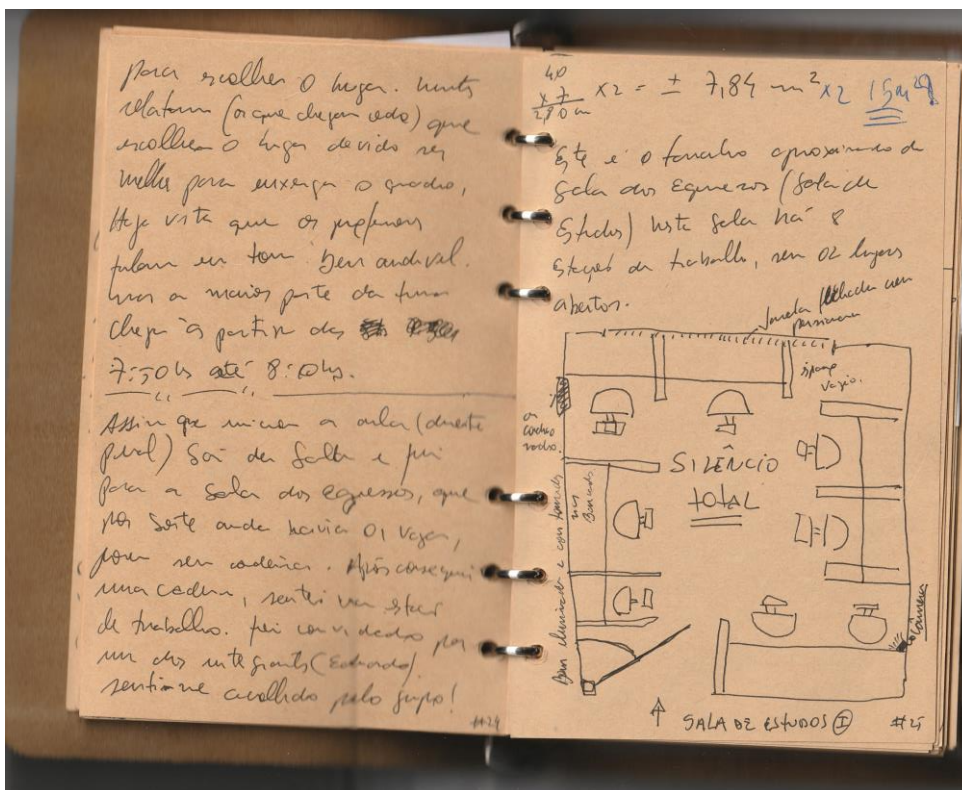 para escolher o lugar. muitos
relataram (os que chegam cedo) que
escolhem o lugar devido ser
melhor para enxergar o quadro,
Haja vista que os professores
falam em tom bem audível.
mas a maior parte da turma
chega à partir das
7:50hs até 8:00hs.
Assim que iniciou a aula (durante
) Saí da Salla e fui
para a Sala dos egressos, que
por sorte ainda havia 01 vaga,
porém sem cadeira. Após consegui
uma cadeira, sentei na
de trabalho. fui convidado por
um dos integrantes (Eduardo)
senti-me acolhido pelo grupo!
#24
40
x 7
280 m
x2 = ± 7,84 m² x2 15m²
Este é o tamanho aproximado da
Sala dos Egressos (Sala de
Estudos) nesta Sala há 8
estações de trabalho, sem 02 lugares
abertos.
Janela fechada com
persiana
espaço
vazio.
SILÊNCIO
TOTAL
Bem iluminada e com tomadas
nas
Bancadas
SALA DE ESTUDOS I
#25